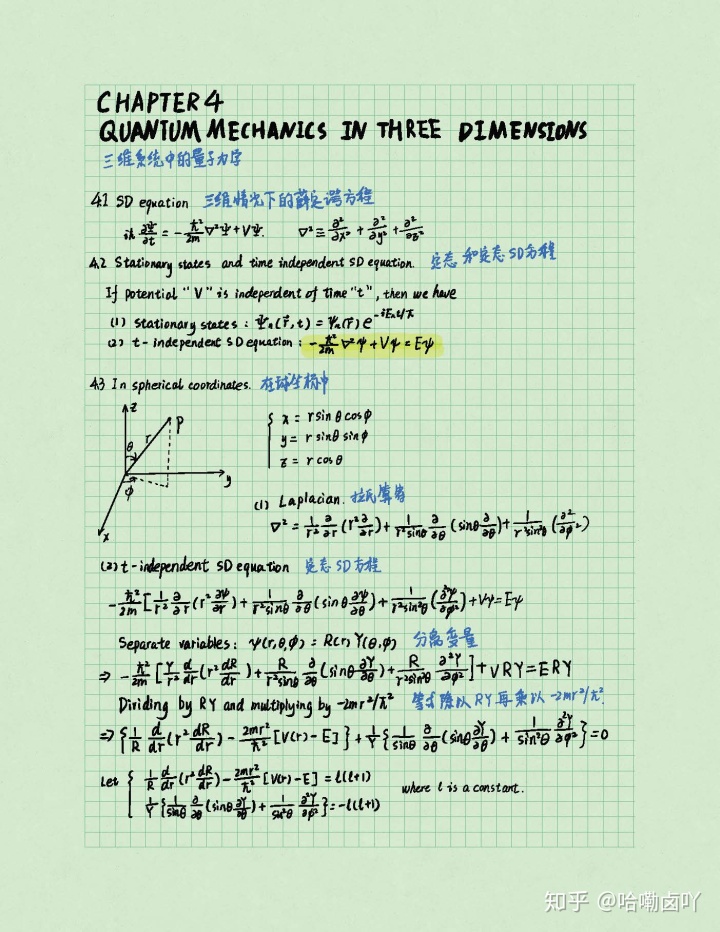 CHAPTER 4
QUANTUM MECHANICS IN THREE DIMENSIONS
三维系统中的量子力学
4.1 SD equation 三维情况下的薛定谔方程
iℏ ∂Ψ/∂t = -ℏ²/2m ∇²Ψ + VΨ. ∇² ≡ ∂²/∂x² + ∂²/∂y² + ∂²/∂z²
4.2 Stationary states and time independent SD equation. 定态和定态SD方程
If potential "V" is independent of time "t", then we have
(1) stationary states : Ψₙ(r⃗,t) = ψₙ(r⃗) e^(-iEₙt/ℏ)
(2) t-independent SD equation : -ℏ²/2m ∇²ψ + Vψ = Eψ
4.3 In spherical coordinates. 在球坐标中
z
P
r
θ
y
φ
x
{ x = r sinθ cosφ
y = r sinθ sinφ
z = r cosθ
(1) Laplacian. 拉氏算符
∇² = 1/r² ∂/∂r (r² ∂/∂r) + 1/(r² sinθ) ∂/∂θ (sinθ ∂/∂θ) + 1/(r² sin²θ) (∂²/∂φ²)
(2) t-independent SD equation 定态SD方程
-ℏ²/2m [1/r² ∂/∂r (r² ∂ψ/∂r) + 1/(r² sinθ) ∂/∂θ (sinθ ∂ψ/∂θ) + 1/(r² sin²θ) (∂²ψ/∂φ²)] + Vψ = Eψ
Separate variables: ψ(r,θ,φ) = R(r) Y(θ,φ) 分离变量
⇒ -ℏ²/2m [Y/r² d/dr (r² dR/dr) + R/(r² sinθ) ∂/∂θ (sinθ ∂Y/∂θ) + R/(r² sin²θ) ∂²Y/∂φ²] + VRY = ERY
Dividing by RY and multiplying by -2mr²/ℏ² 等式除以RY再乘以 -2mr²/ℏ².
⇒ {1/R d/dr (r² dR/dr) - 2mr²/ℏ² [V(r) - E]} + 1/Y {1/sinθ ∂/∂θ (sinθ ∂Y/∂θ) + 1/sin²θ ∂²Y/∂φ²} = 0
Let { 1/R d/dr (r² dR/dr) - 2mr²/ℏ² [V(r) - E] = l(l+1)
1/Y {1/sinθ ∂/∂θ (sinθ ∂Y/∂θ) + 1/sin²θ ∂²Y/∂φ²} = -l(l+1)
where l is a constant.
知乎 @哈嘞卤吖